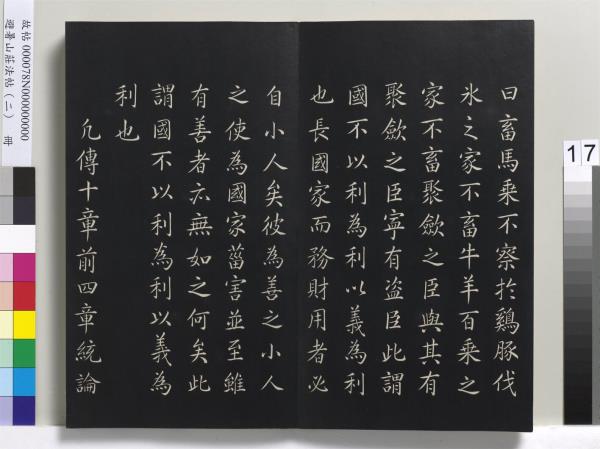 曰畜馬乘不察扵鷄豚伐
氷之家不畜牛羊百乘之
家不畜聚斂之臣與其有
聚斂之臣寧有盗臣此謂
國不以利為利以義為利
也長國家而務財用者必
自小人矣彼為善之小人
之使為國家菑害並至雖
有善者亦無如之何矣此
謂國不以利為利以義為
利也
凢傳十章前四章統論
故帖 000078N000000000
避暑山莊法帖（二） 冊
17